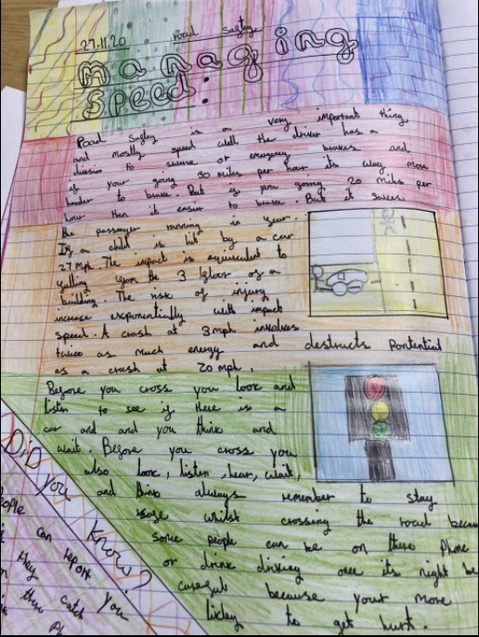 27.11.20
road Saftey
Managing
Speed:
Road Saftey is a very important thing,
and mostly speed well the driver has a
dission to swerve or emergency brakes and
if your going 30 miles per hour its way more
harder to brake. But if you going 20 miles per
hour then it easier to brake. But it saves
the passenger running in
If a child is hit by a car
27 mph. The impact is equivalent to
falling from the 3 floor of a
building. The risk of injury
increase exponentially with impact
speed. A crash at 3mph involves
twice as much energy and destructs Pontential
as a crash at 20 mph.
Before you cross you look and
listen to see if there is a
car and and you think and
wait. Before you cross you
also look, listen, hear, wait,
and think always remember to stay
whilst crossing the road becau
some people can be on there Phone
or drink driving once its night be
carefull because your more
likley to get hurt.
DiD you
know?
eople
can report
they
there catch you